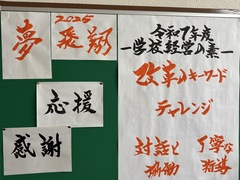 夢
2025
飛翔
応援
感謝
令和7年度
一学校経営の素一
改革のキーワード
チャレンジ
対話と
協働
丁寧な
指導